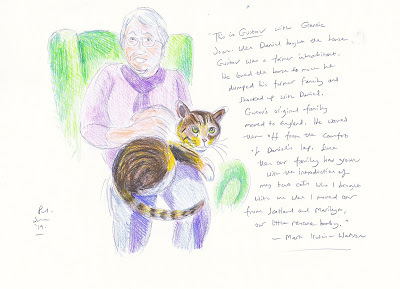 "This is Gustav with Grannie
Joan. When Daniel bought the house,
Gustav was a former inhabitant.
He loved the house so much he
dumped his former family and
shacked up with Daniel.
Gustav's original family
moved to England. He waved
them off from the comfort
of Daniel's lap. Since
then our family has grown
with the introduction of
my two cats who I brought
with me when I moved over
from Scotland and Marilyn,
our little rescue baby."
- Mark
'19.